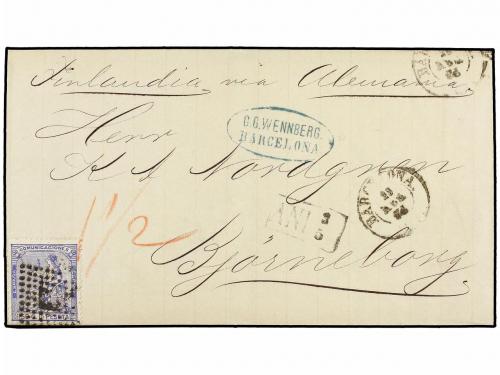 Finlandia via Alemania
C.G.WENNBERG.
BARCELONA
Herr
K A Nordgren
BARCELONA
ANI 3
5
1 1/2
Björneborg
COMUNICACIONES